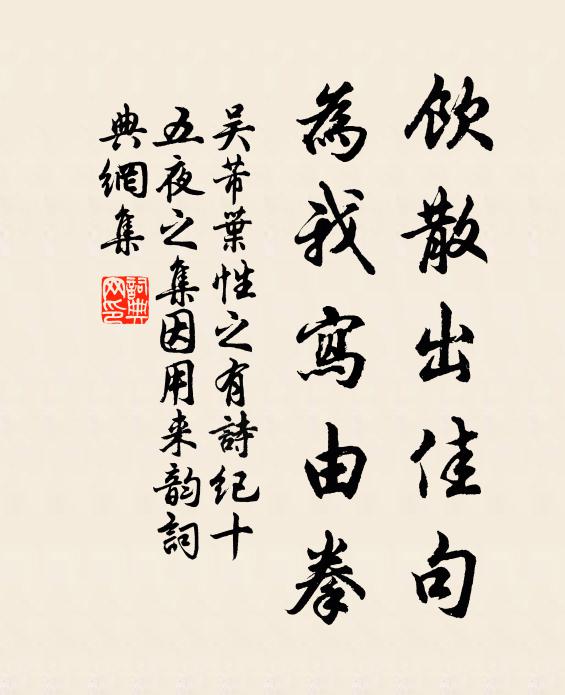 飲散出佳句
為我寫由拳
吴芾葉性之有詩紀十
五夜之集因用来韵詞
典網集
詞典
网印